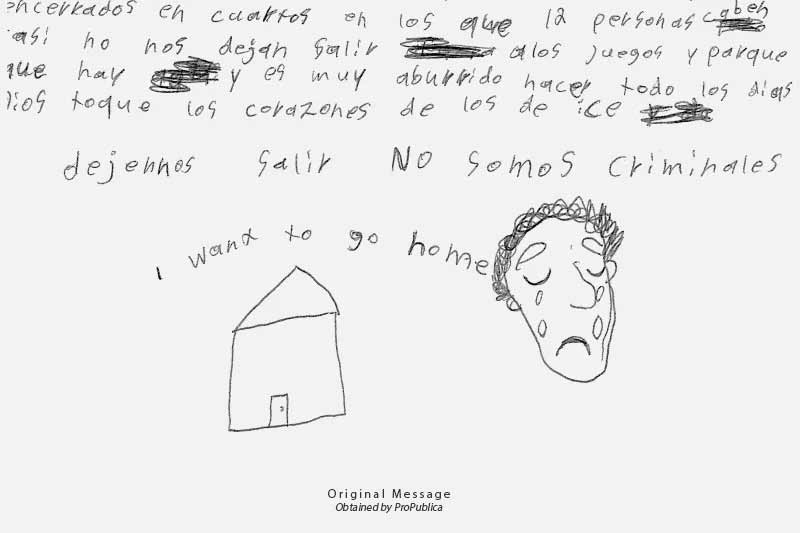 encerrados en cuartos en los que 12 personas caben
casi no nos dejan salir alos juegos y parque
que hay y es muy aburrido hacer todo los dias
dios toque los corazones de los de ice
dejennos salir NO somos criminales
I want to go home
Original Message
Obtained by ProPublica